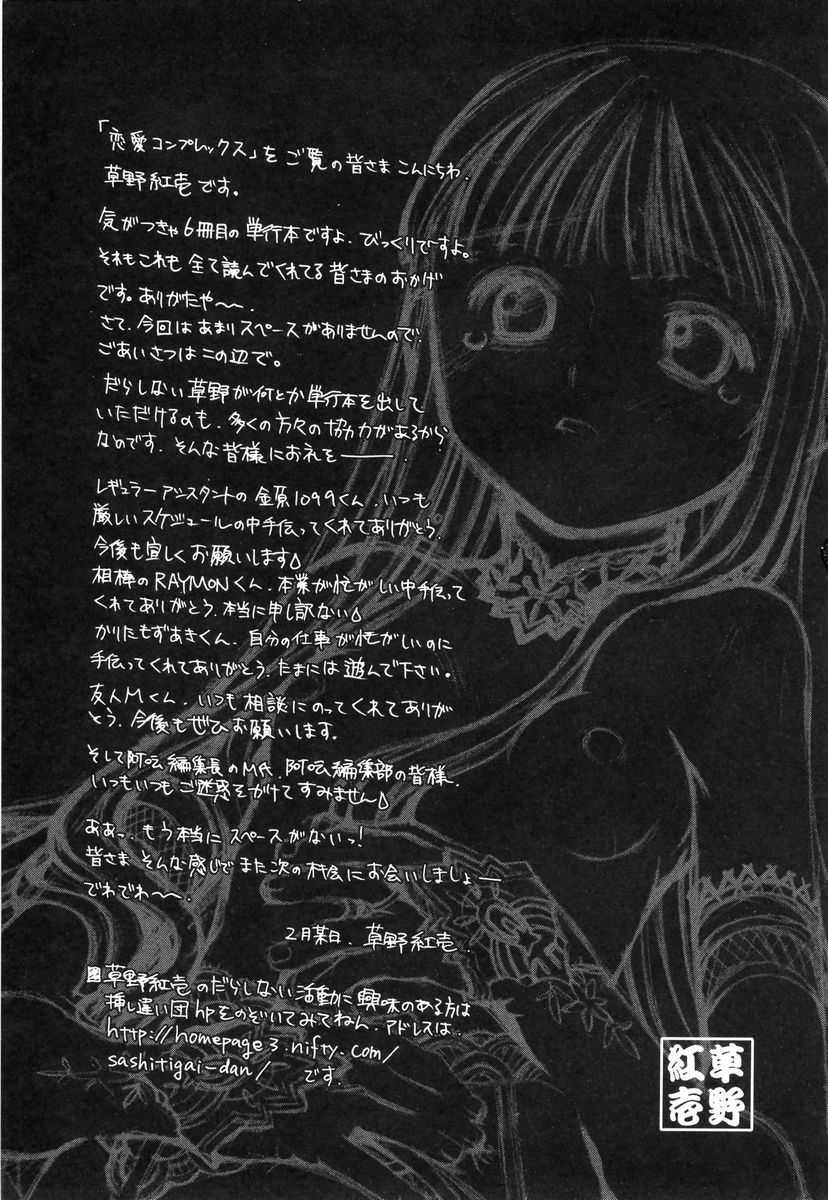 「恋愛コンプレックス」をご覧の皆さまこんにちわ.
草野紅壱です。
気がつきゃ6冊目の単行本ですよ.びっくりですよ。
それもこれも全て読んでくれてる皆さまのおかげ
です。ありがたや〜〜.
さて.今回はあまりスペースがありませんので.
ごあいさつはこの辺で。
だらしない草野が何とか単行本を出して
いただけるのも、多くの方々の協力があるから
なのです.そんな皆様にお礼を――.
レギュラーアシスタントの金原1099くん.いつも
厳しいスケジュールの中手伝ってくれてありがとう.
今後も宜しくお願いします
相棒のRAYMONくん.本業が忙がしい中手伝って
くれてありがとう.本当に申し訳ない
かりたもずあきくん.自分の仕事が忙がしいのに
手伝ってくれてありがとう.たまには遊んで下さい。
友人Mくん.いつも相談にのってくれてありが
とう.今後もぜひお願いします。
そして阿吽編集長のM氏.阿吽編集部の皆様.
いつもいつもご迷惑をかけてすみません
ああっ.もう本当にスペースがないっ!
皆さまそんな感じでまた次の機会にお会いしましょー
でわでわ〜〜.
2月某日.草野紅壱.
草野紅壱のだらしない活動に興味のある方は
挿し違い団hpをのぞいてみてねん.アドレスは.
http://homepage3.nifty.com/
sashitigai-dan/ です.
草野
紅壱